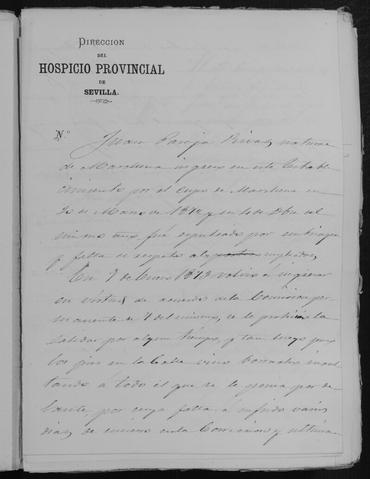 DIRECCION
DEL
HOSPICIO PROVINCIAL
DE
SEVILLA.
N.º Juan Pareja Rivas, natural
de Marchena ingresó en este Estable-
cimiento por el cupo de Marchena en
de Marzo de y en de del
mismo año fué expulsado por
y falta de respeto a empleados,
En 9 de Enero 1879 volvió a ingresar
en virtud de acuerdo de la Comision per-
manente de 4 del mismo, se le la
salida por algun tiempo, y tan luego puso
los pies en la Calle vino borracho insul-
tando á todo el que se le ponia por de-
lante, por cuya falta, á sufrido varios
dias de encierro en la Correccion y ultima-